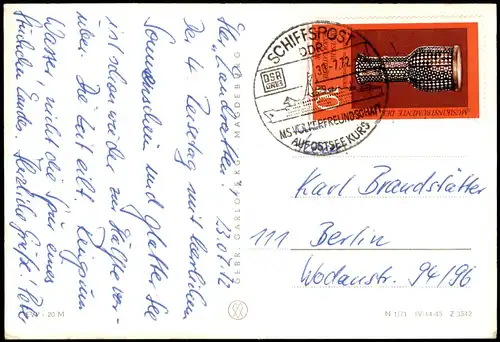 Ihr "Landratten! 13.07.72
Der 4. Reisetag mit herrlichem
Sonnenschein und glatter See
ist schon wieder zur Hälfte ver-
über. Die Zeit eilt. Ringsum
Wasser, nicht die Spur eines
Stückchen Landes. Herzliche Grüße! Peter
GEBR. GARLOFF KG MAGDEBURG
SCHIFFSPOST
DDR
DSR
LINES
-7.72
MS VÖLKERFREUNDSCHAFT
AUF OSTSEEKURS
MUSIKINSTRUMENTE DER
10
Karl Brandstätter
111 Berlin
Wodanstr. 94/96
20 M
N 1/71 IV-14-45 Z 3542